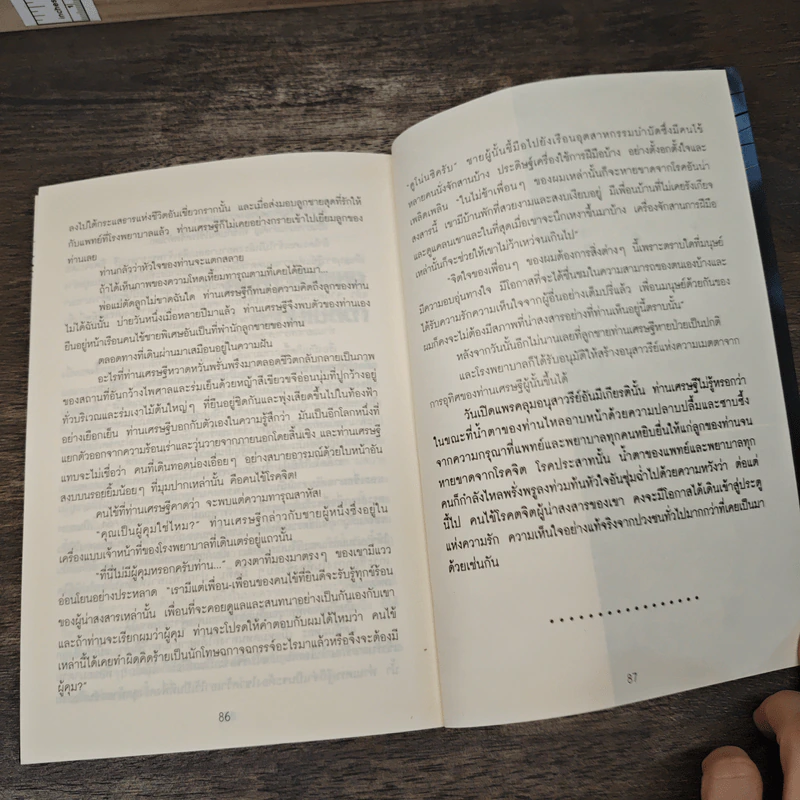 ลงไปใต้กระแสธารแห่งชีวิตอันเชี่ยวกรากนั้น และเมื่อส่งมอบลูกชายสุดที่รักให้
กับแพทย์ที่โรงพยาบาลแล้ว ท่านเศรษฐีก็ไม่เคยอย่างกรายเข้าไปเยี่ยมลูกของ
ท่านเลย
ท่านกลัวว่าหัวใจของท่านจะแตกสลาย
ถ้าได้เห็นภาพของความโหดเหี้ยมทารุณตามที่เคยได้ยินมา...
พ่อแม่ตัดลูกไม่ขาดฉันใด ท่านเศรษฐีก็ทนต่อความคิดถึงลูกของท่าน
ไม่ได้ฉันนั้น บ่ายวันหนึ่งเมื่อหลายปีมาแล้ว ท่านเศรษฐีจึงพบตัวของท่านเอง
ยืนอยู่หน้าเรือนคนไข้ชายพิเศษอันเป็นที่พำนักลูกชายของท่าน
ตลอดทางที่เดินผ่านมาเสมือนอยู่ในความฝัน
อะไรที่ท่านเศรษฐีหวาดหวั่นพรั่นพรึงมาตลอดชีวิตกลับกลายเป็นภาพ
ของสถานที่อันกว้างไพศาลและร่มเย็นด้วยหญ้าสีเขียวขจีอ่อนนุ่มที่ปูกว้างอยู่
ทั่วบริเวณและร่มเงาไม้ต้นใหญ่ๆ ที่ยืนอยู่ชิดกันและพุ่งเสียดขึ้นไปในท้องฟ้า
อย่างเยือกเย็น ท่านเศรษฐีบอกกับตัวเองในความรู้สึกว่า มันเป็นอีกโลกหนึ่งที่
แยกตัวออกจากความร้อนเร่าและวุ่นวายจากภายนอกโดยสิ้นเชิง และท่านเศรษฐี
แทบจะไม่เชื่อว่า คนที่เดินทอดน่องเอื่อยๆ อย่างสบายอารมณ์ด้วยใบหน้าอัน
สงบบนรอยยิ้มน้อยๆ ที่มุมปากเหล่านั้น คือคนไข้โรคจิต!
คนไข้ที่ท่านเศรษฐีคาดว่า จะพบแต่ความทารุณสาหัส!
"คุณเป็นผู้คุมใช่ไหม?" ท่านเศรษฐีกล่าวกับชายผู้หนึ่งซึ่งอยู่ใน
เครื่องแบบเจ้าหน้าที่ของโรงพยาบาลที่เดินเตร่อยู่แถวนั้น
"ที่นี่ไม่มีผู้คุมหรอกครับท่าน..." ดวงตาที่มองมาตรงๆ ของเขามีแวว
อ่อนโยนอย่างประหลาด "เรามีแต่เพื่อน-เพื่อนของคนไข้ที่ยินดีจะรับรู้ทุกข์ร้อน
ของผู้น่าสงสารเหล่านั้น เพื่อนที่จะคอยดูแลและสนทนาอย่างเป็นกันเองกับเขา
และถ้าท่านจะเรียกผมว่าผู้คุม ท่านจะโปรดให้คำตอบกับผมได้ไหมว่า คนไข้
เหล่านี้ได้เคยทำผิดคิดร้ายเป็นนักโทษฉกาจฉกรรจ์อะไรมาแล้วหรือจึงจะต้องมี
ผู้คุม?"
86
"ดูโน่นซิครับ" ชายผู้นั้นชี้มือไปยังเรือนอุตสาหกรรมบำบัดซึ่งมีคนไข้
หลายคนนั่งจักสานบ้าง ประดิษฐ์เครื่องใช้การฝีมือบ้าง อย่างตั้งอกตั้งใจและ
เพลิดเพลิน "ในไม่ช้าเพื่อนๆ ของผมเหล่านั้นก็จะหายขาดจากโรคอันน่า
สงสารนี้ เขามีบ้านพักที่สวยงามและสงบเงียบอยู่ มีเพื่อนบ้านที่ไม่เคยรังเกียจ
และดูแคลนเขาและในที่สุดเมื่อเขาจะนึกเหงาขึ้นมาบ้าง เครื่องจักสานการฝีมือ
เหล่านั้นก็จะช่วยให้เขาไม่ว้าเหว่จนเกินไป"
"จิตใจของเพื่อนๆ ของผมต้องการสิ่งต่างๆ นี้เพราะตราบใดที่มนุษย์
มีความอบอุ่นทางใจ มีโอกาสที่จะได้ชื่นชมในความสามารถของตนเองบ้างและ
ได้รับความรักความเห็นใจจากผู้อื่นอย่างเต็มปรี่แล้ว เพื่อนมนุษย์ด้วยกันของ
ผมก็คงจะไม่ต้องมีสภาพที่น่าสงสารอย่างที่ท่านเห็นอยู่นี้ตราบนั้น"
หลังจากวันนั้นอีกไม่นานเลยที่ลูกชายท่านเศรษฐีหายป่วยเป็นปกติ
และโรงพยาบาลก็ได้รับอนุมัติให้สร้างอนุสาวรีย์แห่งความเมตตาจาก
การอุทิศของท่านเศรษฐีผู้นั้นขึ้นได้
วันเปิดแพรคลุมอนุสาวรีย์อันมีเกียรตินั้น ท่านเศรษฐีไม่รู้หรอกว่า
ในขณะที่น้ำตาของท่านไหลอาบหน้าด้วยความปลาบปลื้มและซาบซึ้ง
จากความกรุณาที่แพทย์และพยาบาลทุกคนหยิบยื่นให้แก่ลูกของท่านจน
หายขาดจากโรคจิต โรคประสาทนั้น น้ำตาของแพทย์และพยาบาลทุก
คนก็กำลังไหลพรั่งพรูลงท่วมท้นหัวใจอันชุ่มฉ่ำไปด้วยความหวังว่า ต่อแต่
นี้ไป คนไข้โรคตจิตผู้น่าสงสารของเขา คงจะมีโอกาสได้เดินเข้าสู่ประตู
แห่งความรัก ความเห็นใจอย่างแท้จริงจากปวงชนทั่วไปมากกว่าที่เคยเป็นมา
ด้วยเช่นกัน
................
87